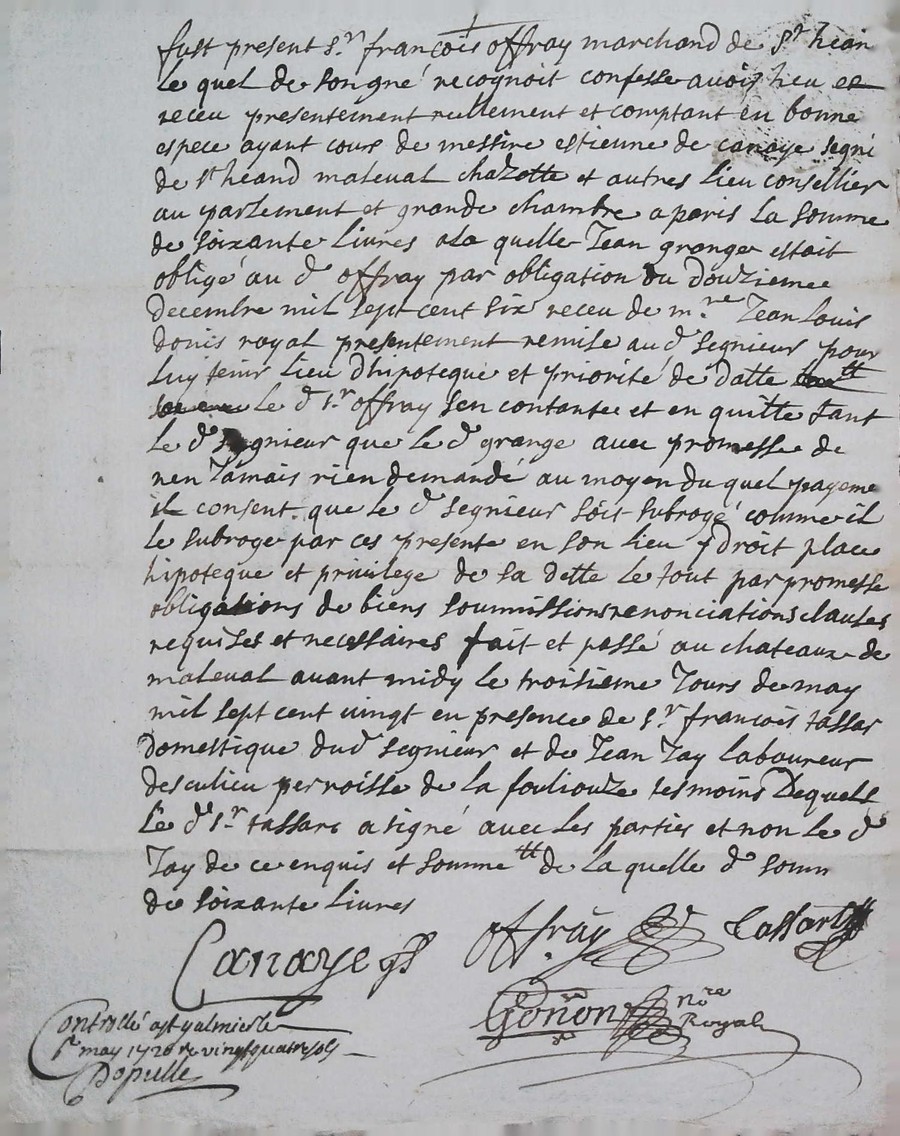 fust present s.r françois offray marchand de st hean
le quel de son gré recognoit confesse avoir heu et
receu presentement reellement et comptant en bonne
espece ayant cours de messire estienne de canaye segni
de st heand maleval chazotte et autres lieu consellier
au parlement et grande chambre a paris la somme
de soixante livres a la quelle Jean grange estoit
obligé au d offray par obligation du douzieme
decembre mil sept cent six receu de m.re Jean Louis
donis royal presentement remise au d segnieur pour
luy tenir lieu dhipoteque et priorité de datte tt
le d s.r offray sen contante et en quitte tant
le d segnieur que le d grange avec promesse de
nen Jamais rien demandé au moyen du quel payeme
il consent que le d segnieur soit subrogé comme il
le subroge par ces presente en son lieu droit place
hipoteque et privilege de sa dette le tout par promesse
obligations de biens soummissions renonciations clauses
requises et necessaires fait et passé au chateaux de
maleval avant midy le troisieme Jours de may
mil sept cent vingt en presence de s.r françois tassar
domestique du d segnieur et de Jean Jay laboureur
desculieu perroisse de la fouliouze tesmoins Dequels
Le d s.r tassart a signé avec les parties et non le d
Jay de ce enquis et somme tt de la quelle d somm
de soixante livres
Canaye offray Tassart
Gonon n.re Royal
Controllé a st galmier le
may 1720 r vingt quatre sols
Dopulle